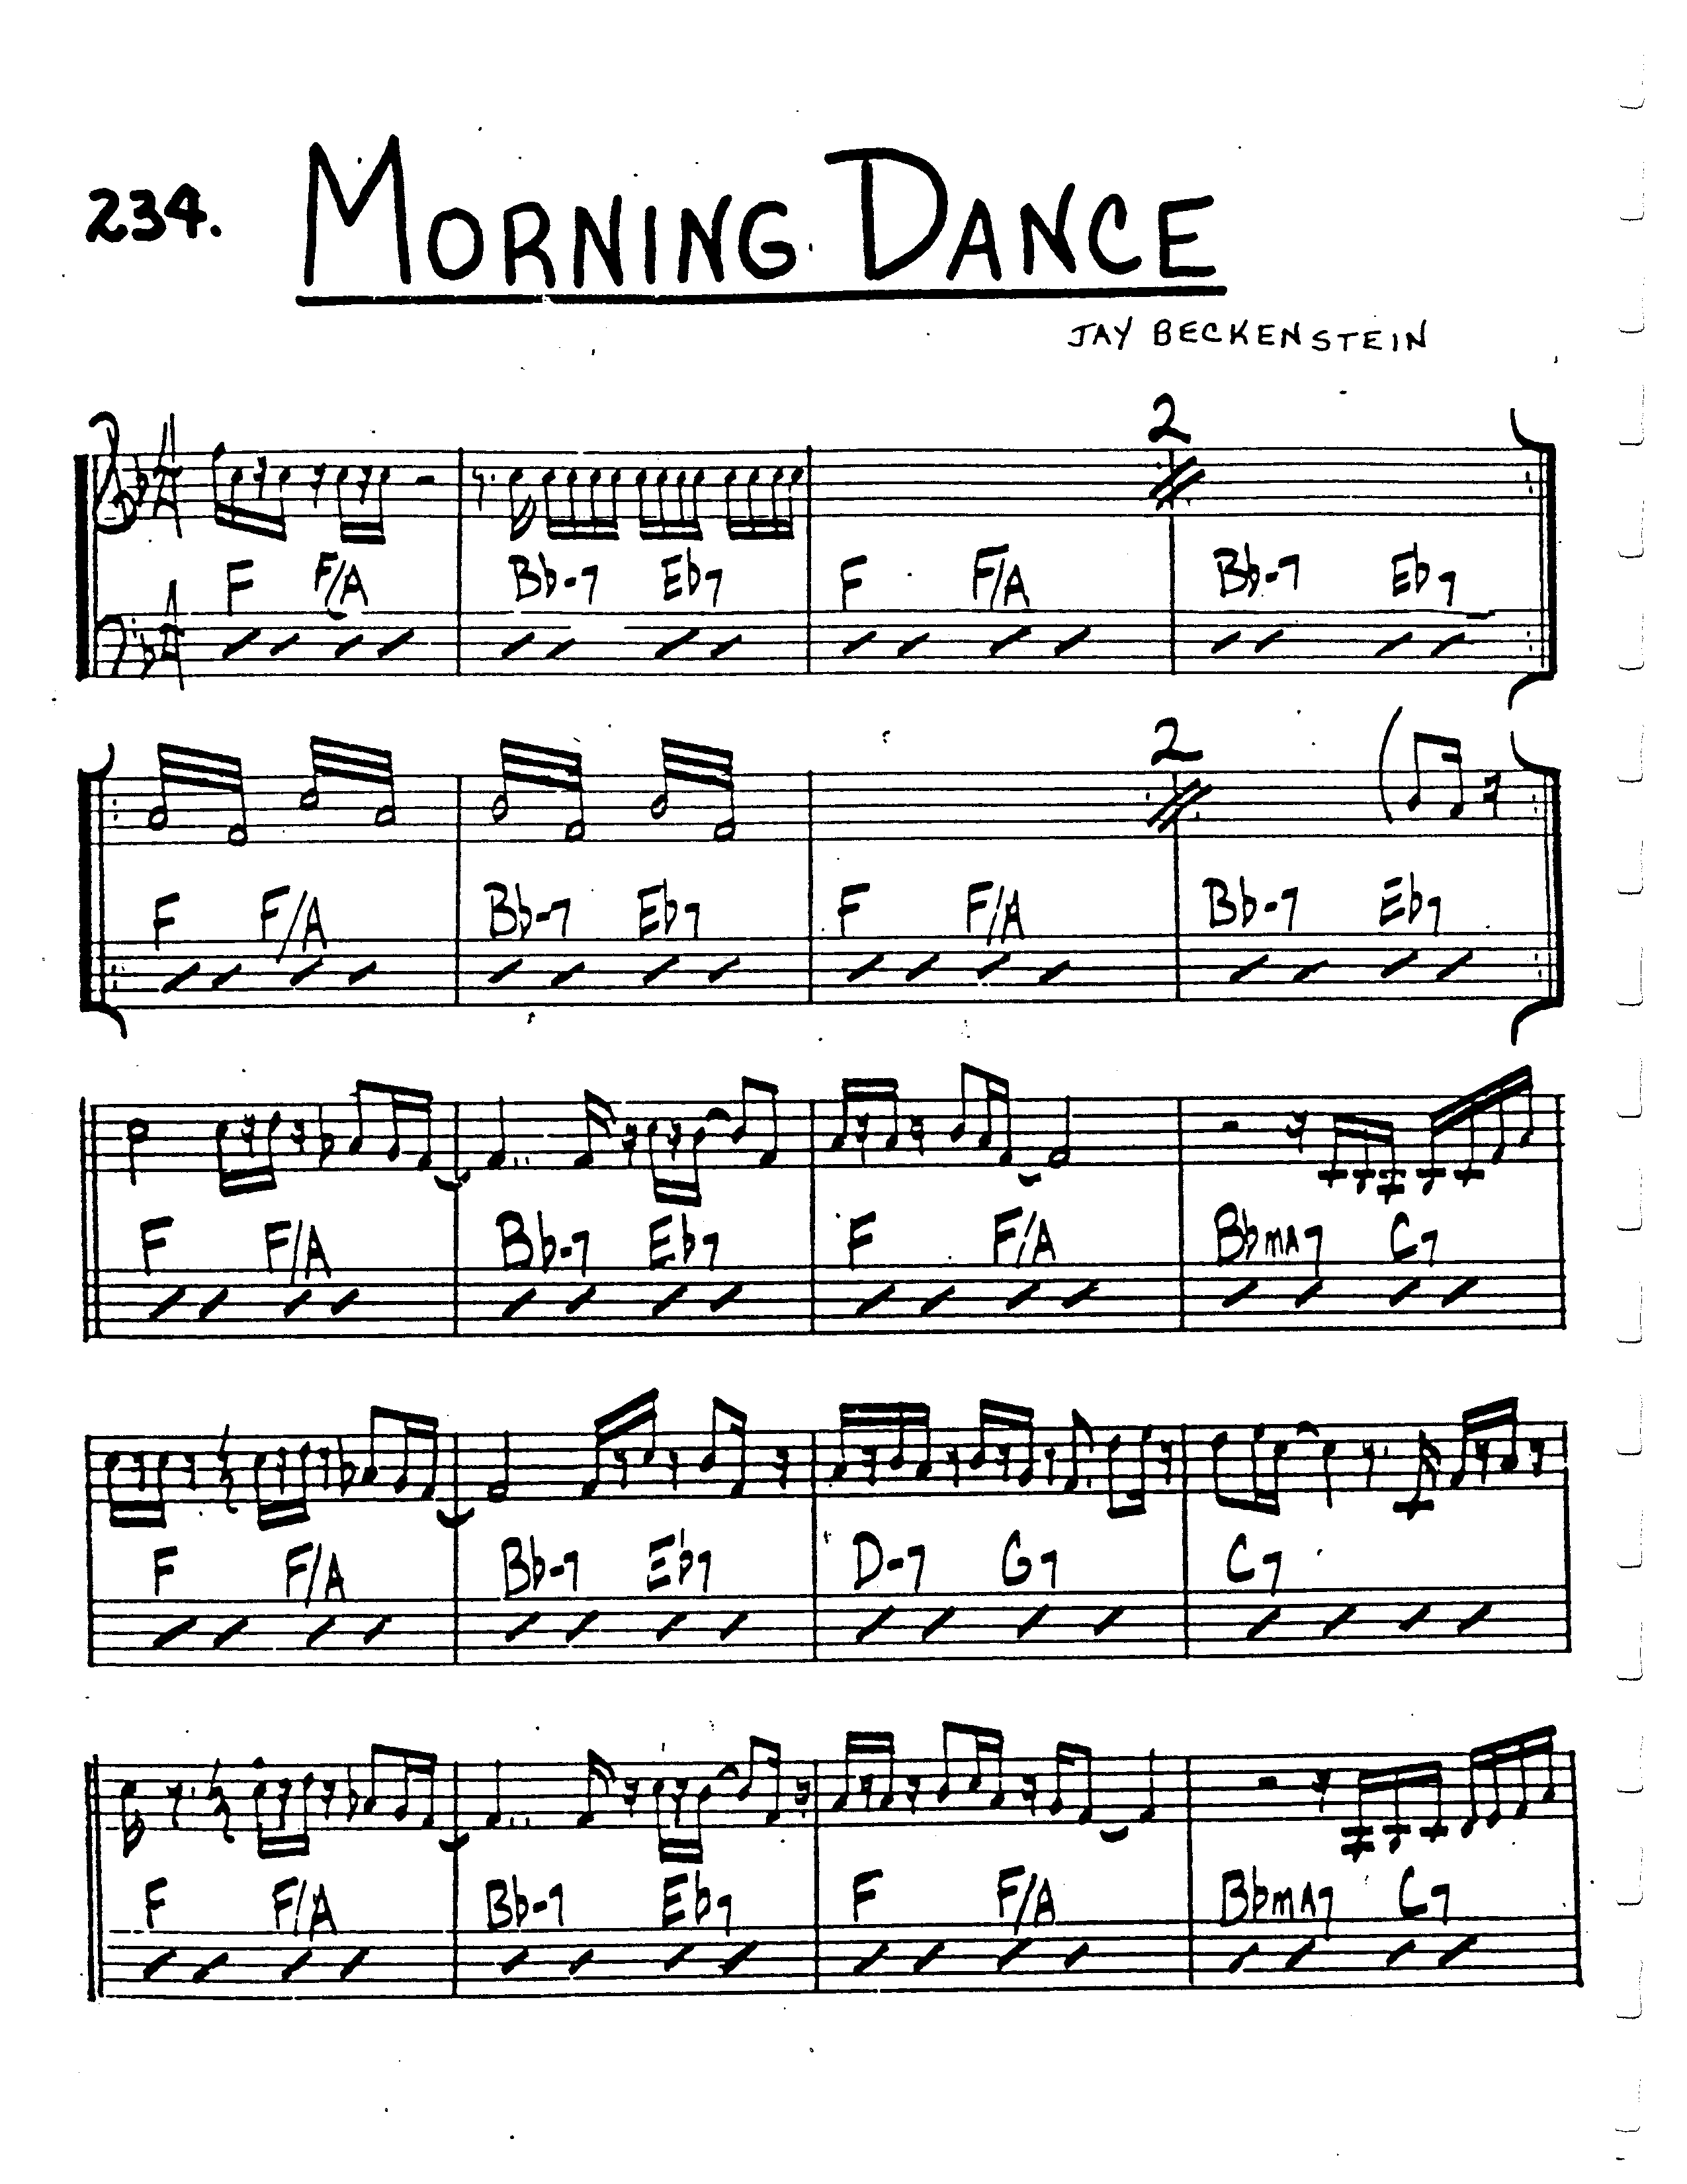 234. MORNING DANCE
JAY BECKENSTEIN
2
F F/A Bb-7 Eb7 F F/A Bb-7 Eb7
2
F F/A Bb-7 Eb7 F F/A Bb-7 Eb7
F F/A Bb-7 Eb7 F F/A BbMA7 C7
F F/A Bb-7 Eb7 D-7 G7 C7
F F/A Bb-7 Eb7 F F/A BbMA7 C7